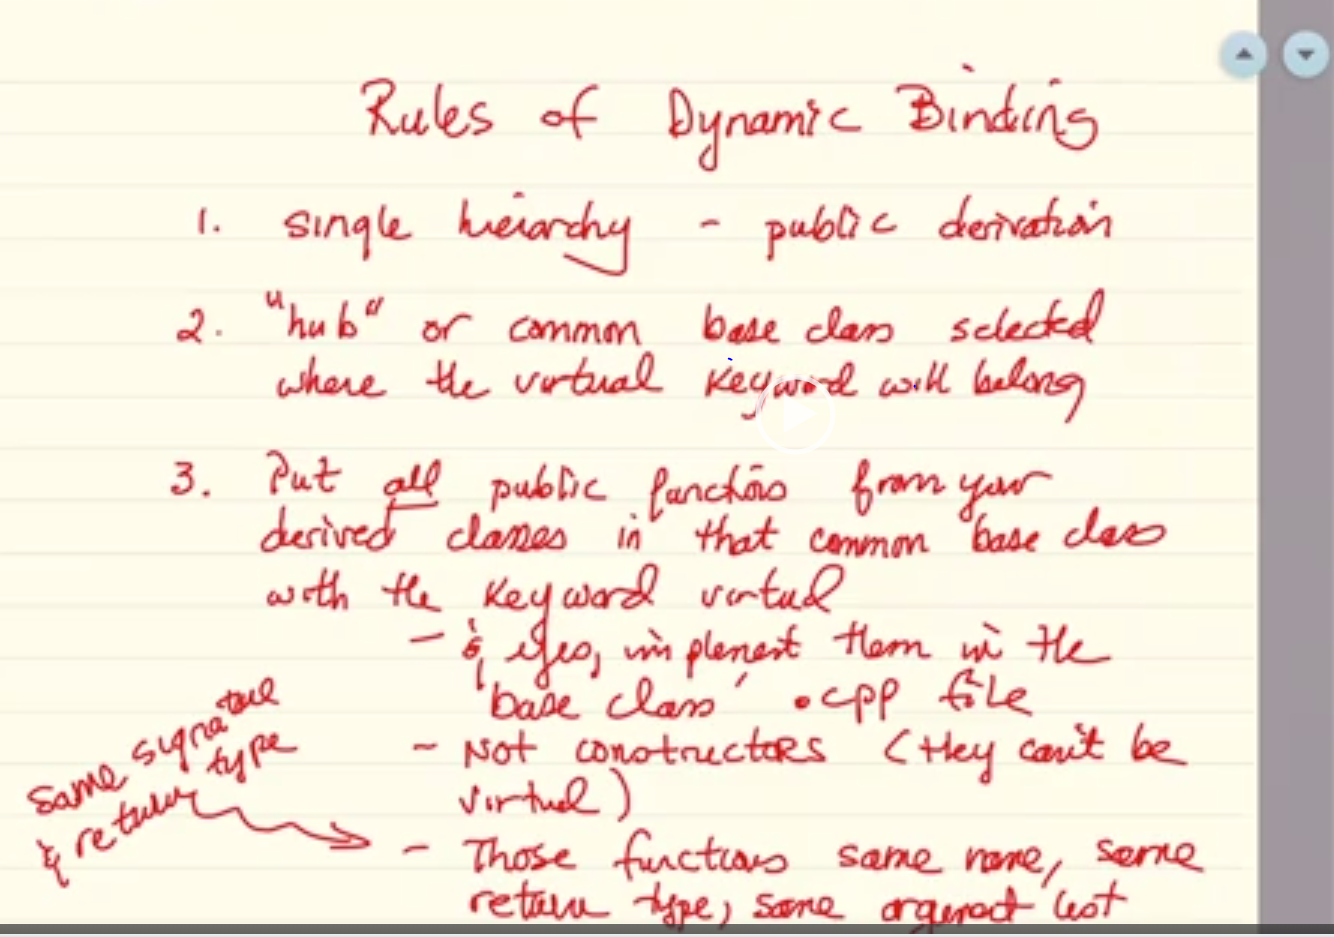 Rules of Dynamic Binding
1. single hieiarchy - public derivation
2. "hub" or common base class selected
where the virtual keyword will belong
3. Put all public functions from your
derived classes in that common base class
with the keyword virtual
- & yes, implement them in the
base class' .cpp file
- Not constructors (they can't be
virtual)
same signature
& return type
- Those functions same name, same
return type, same argument list